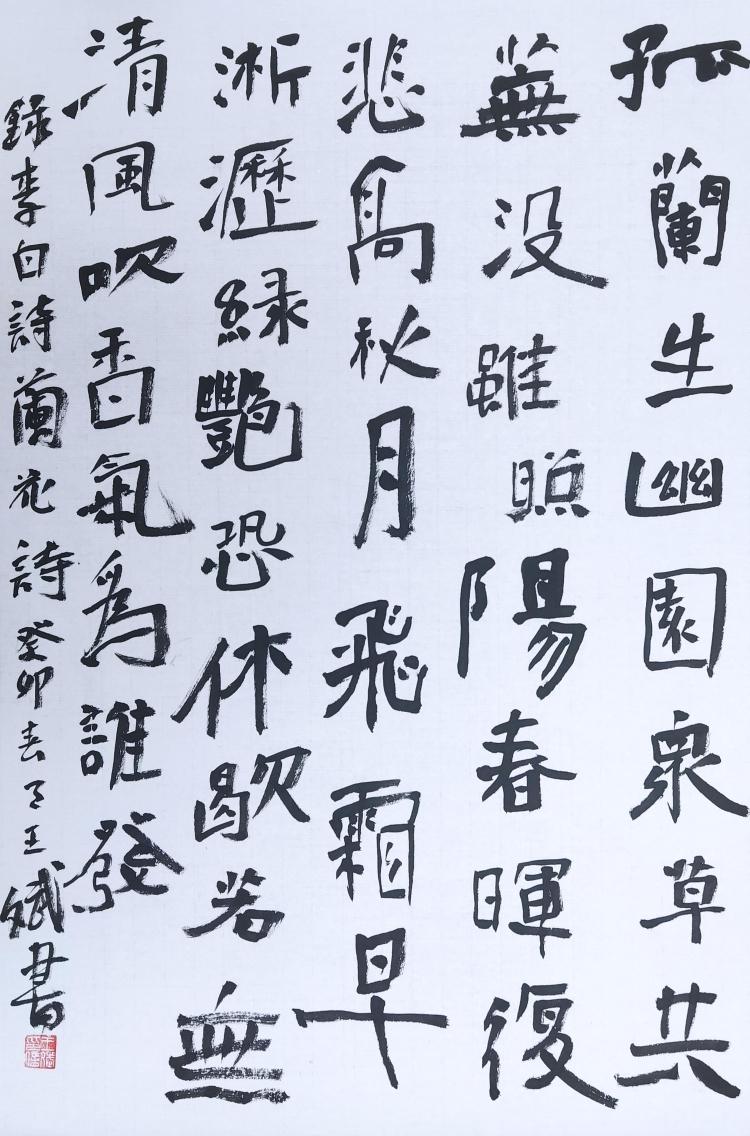 孤蘭生幽園衆草共
蕪没雖照陽春暉復
悲高秋月飛霜早
淅瀝緑艷恐休歇若無
清風吹香氣為誰發
録李白詩蘭花詩癸卯春月王斌書